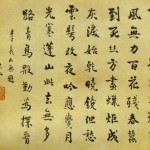 風無力百花殘春蠶
到死丝方盡蠟炬成
灰淚始乾曉鏡但愁
雲鬢改夜吟應覺月
光寒蓬山此去無多
路青鳥殷勤為探看
李義山無題